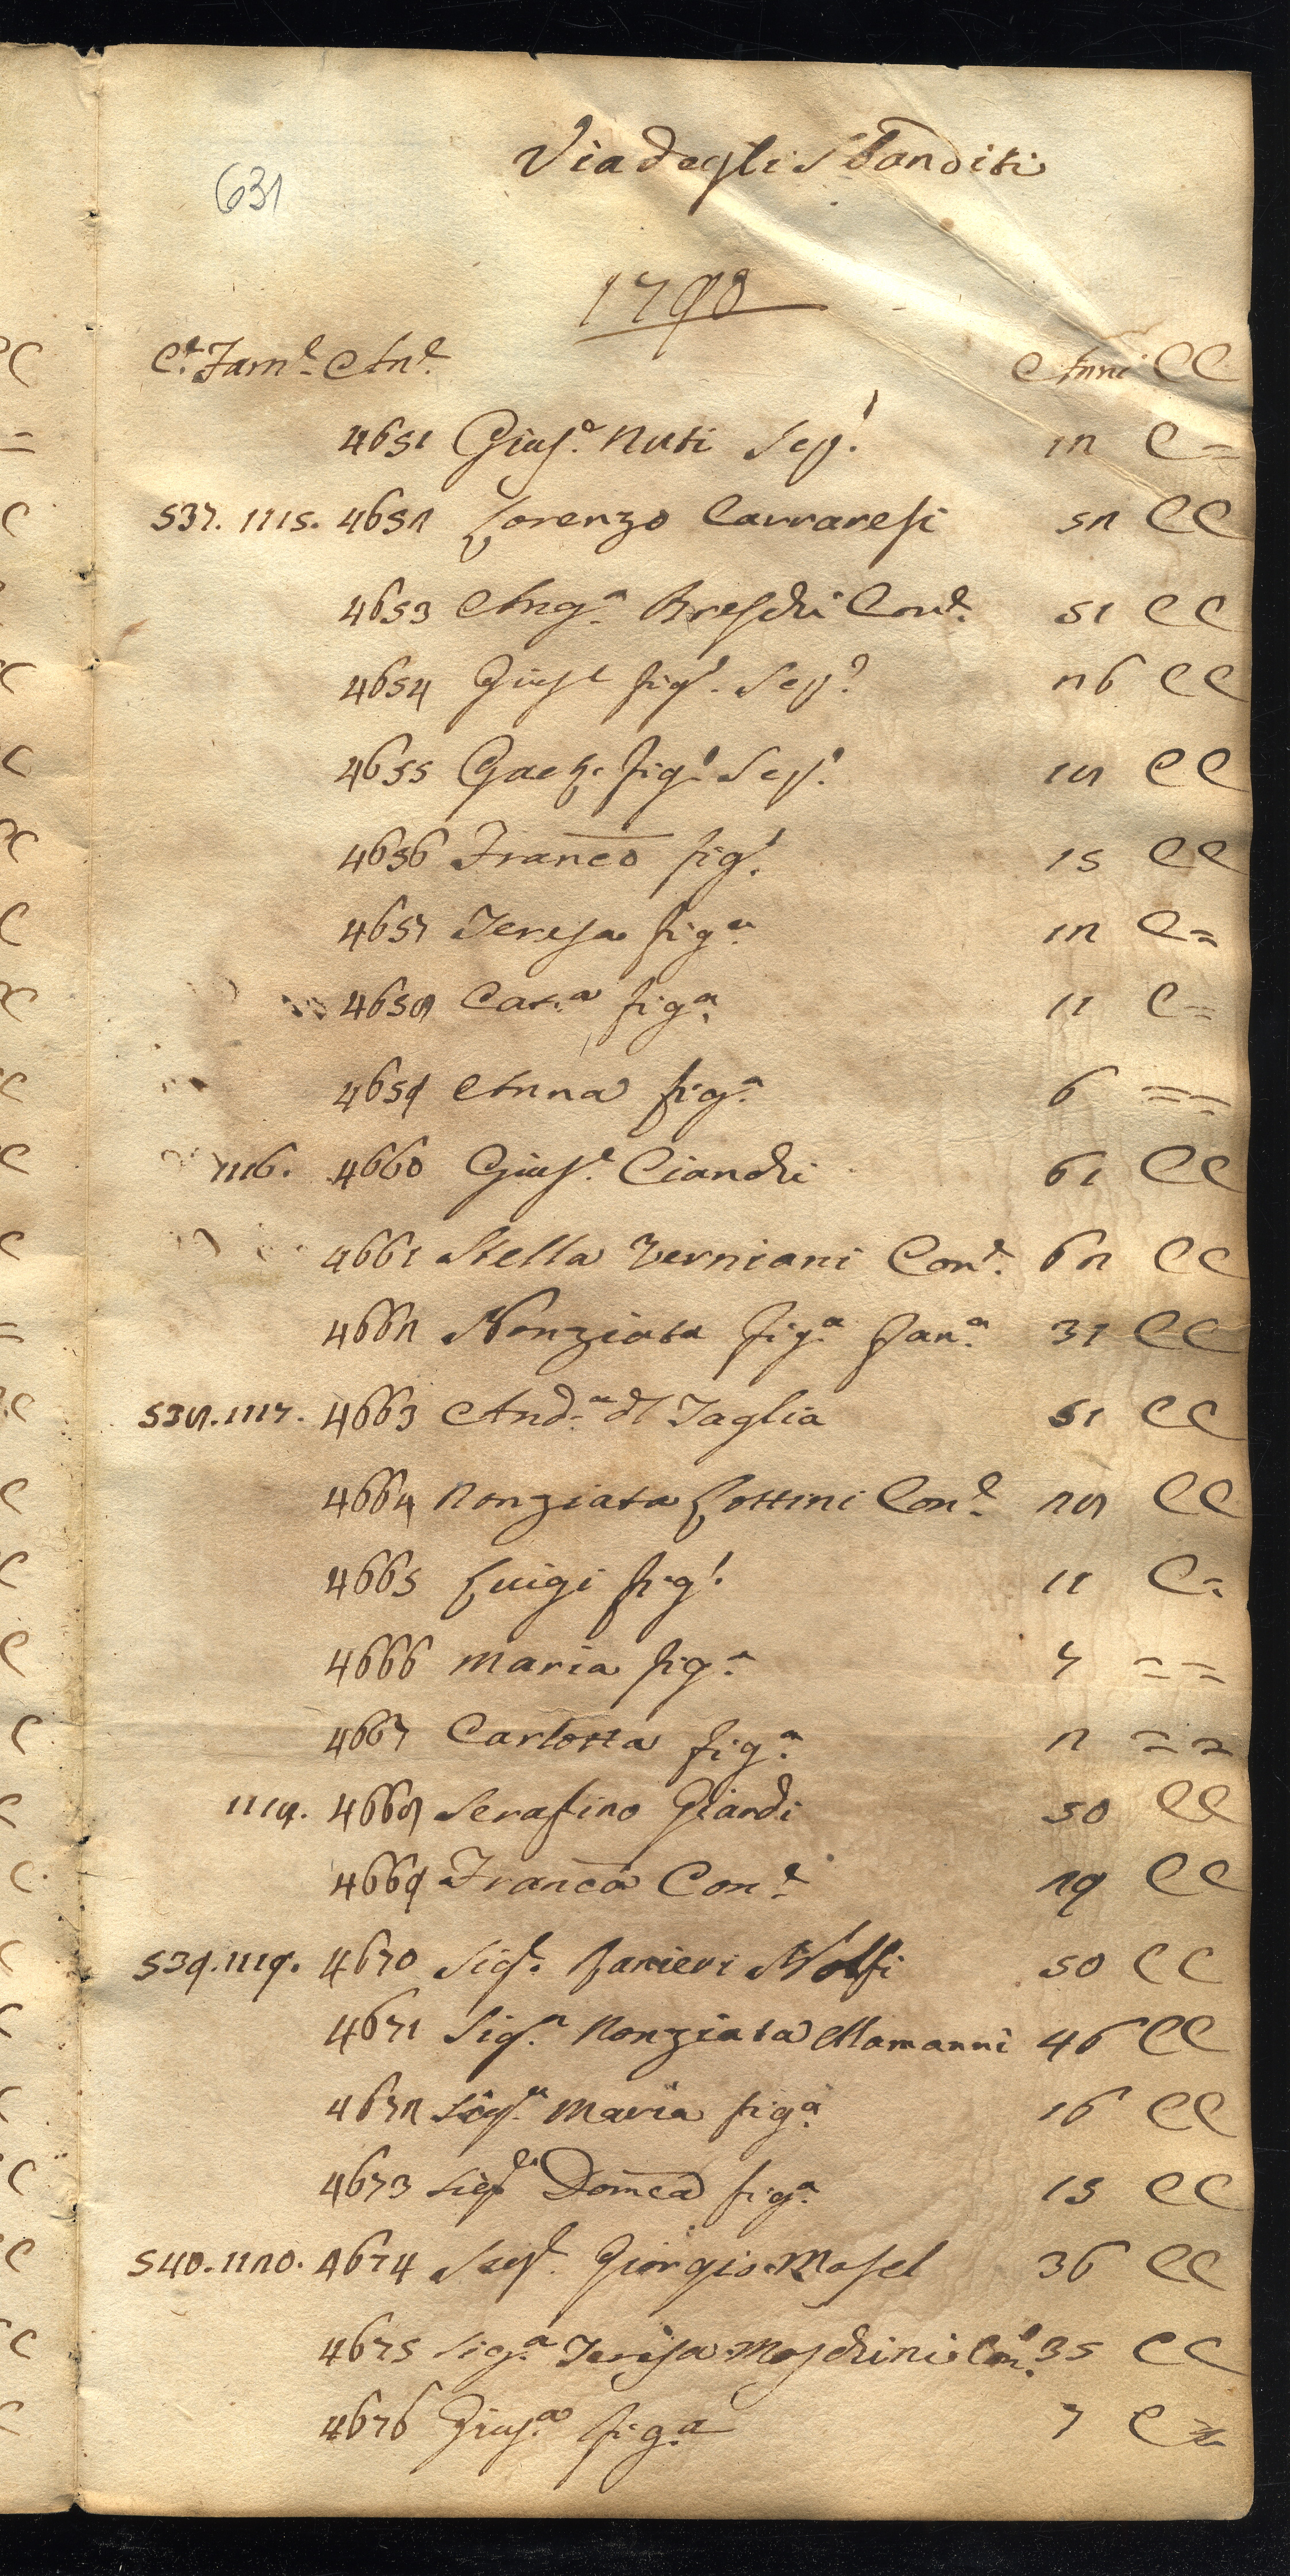 631
Via degli Sbanditi
1798
C.e Fam.e An.e Anni CC
4651 Gius.e Nuti Scp.o 12 C=
537. 1115. 4652 Lorenzo Carraresi 52 CC
4653 Ang.a Breschi Con.e 51 CC
4654 Gius.e fig.o Scp.o 26 CC
4655 Gaet.o fig.o Scp.o 18 CC
4656 Franco fig.o 15 CC
4657 Teresa fig.a 12 C=
4658 Cat.a fig.a 11 C=
4659 Anna fig.a 6 ==
1116. 4660 Gius.e Cianchi 61 CC
4661 Stella Verniani Con.e 62 CC
4662 Nonziata fig.a Fan.a 31 CC
538. 1117. 4663 And.a dl Taglia 51 CC
4664 Nonziata Lottini Con.e 28 CC
4665 Luigi fig.o 11 C=
4666 Maria fig.a 7 ==
4667 Carlotta fig.a 2 ==
1118. 4668 Serafino Giardi 50 CC
4669 Franca Con.e 29 CC
539. 1119. 4670 Sig.e Ranieri Nolfi 50 CC
4671 Sig.a Nonziata Mamanni 46 CC
4672 Sig.a Maria fig.a 16 CC
4673 Sig.a Domca fig.a 15 CC
540. 1120. 4674 Sig.e Giorgio Masel 36 CC
4675 Sig.a Teresa Moschini Con.e 35 CC
4676 Gius.a fig.a 7 C=